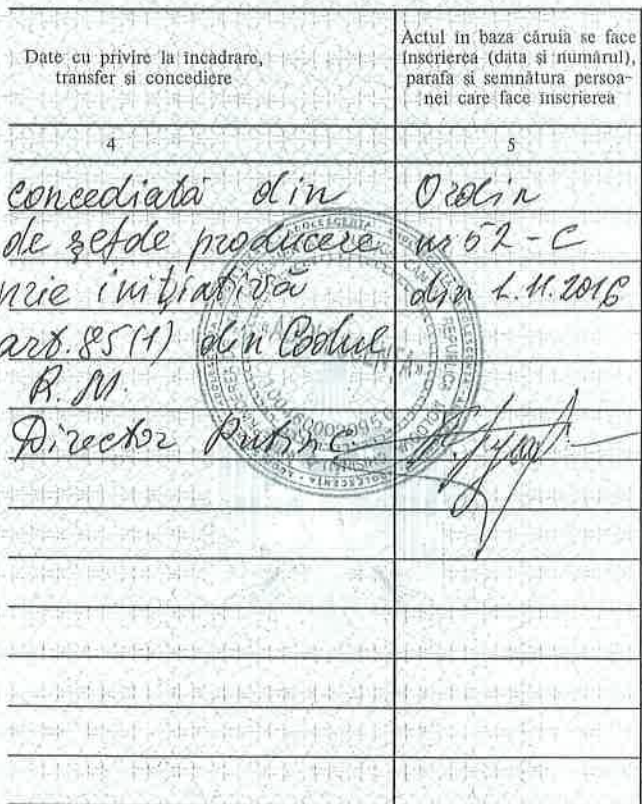 Date cu privire la încadrare,
transfer și concediere
Actul in baza căruia se face
înscrierea (data și numărul),
parafa și semnătura persoa-
nei care face înscrierea
4
5
concediată din
Ordin
de șef de producere
nr 52 - C
nzie inițiativă
din 1.11.2016
art. 85(1) din Codul
R. M.
Director
REPUBLICA MOLDOVA